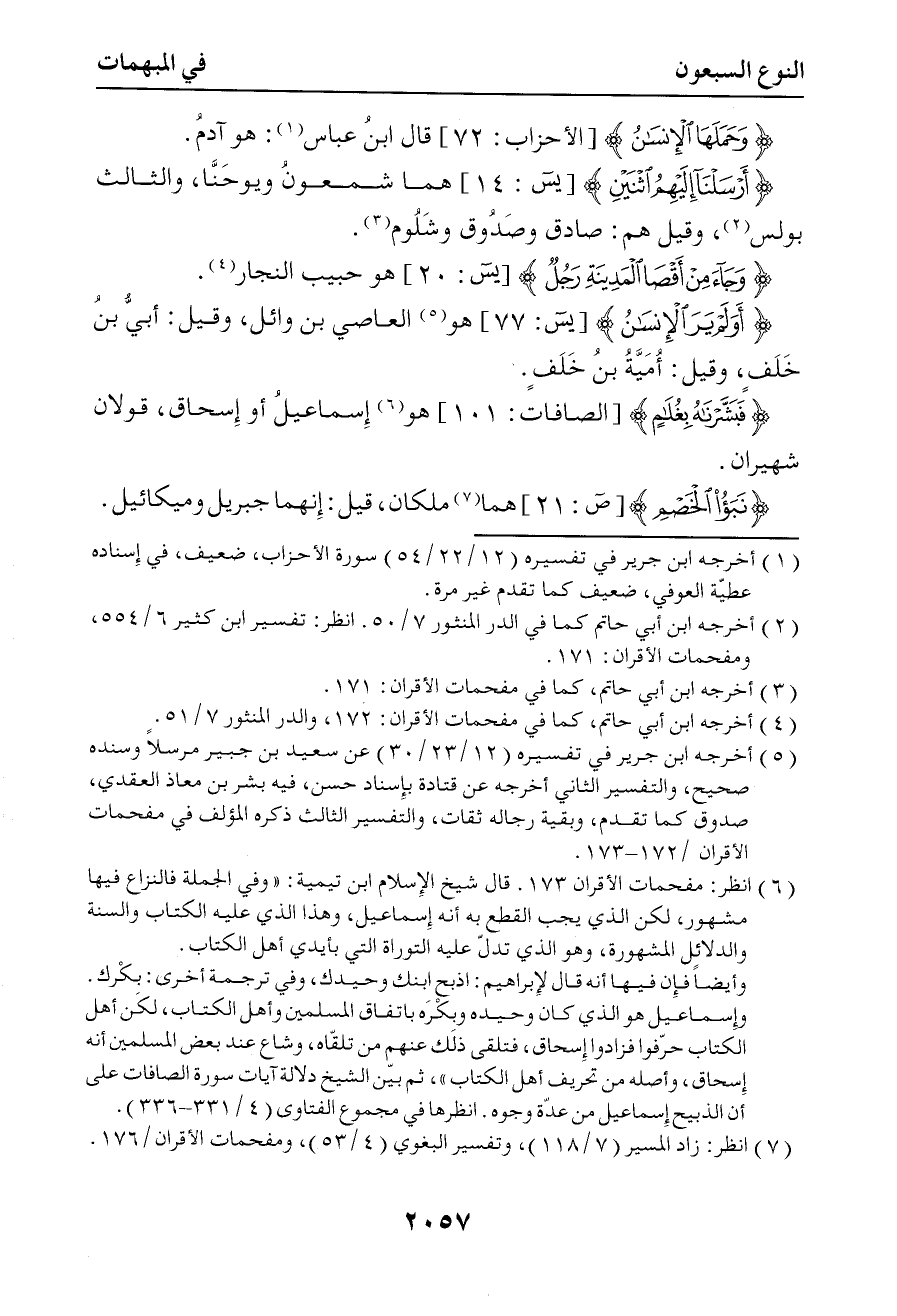 النوع السبعون في المبهمات
﴿ وَحَمَلَهَا ٱلْإِنسَٰنُ ﴾ [الأحزاب: ٧٢] قال ابنُ عباس(١): هو آدمُ.
﴿ أَرْسَلْنَآ إِلَيْهِمُ ٱثْنَيْنِ ﴾ [يسٓ: ١٤] هما شمعونُ ويوحَنَّا، والثالث
بولس(٢)، وقيل هم: صادق وصَدُوق وشَلُوم(٣).
﴿ وَجَآءَ مِنْ أَقْصَا ٱلْمَدِينَةِ رَجُلٌ ﴾ [يسٓ: ٢٠] هو حبيب النجار(٤).
﴿ أَوَلَمْ يَرَ ٱلْإِنسَٰنُ ﴾ [يسٓ: ٧٧] هو(٥) العاصي بن وائل، وقيل: أبيُّ بنُ
خَلَفٍ، وقيل: أُمَيَّةُ بنُ خَلَفٍ.
﴿ فَبَشَّرْنَٰهُ بِغُلَٰمٍ ﴾ [الصافات: ١٠١] هو(٦) إسماعيلُ أو إسحاق، قولان
شهيران.
﴿ نَبَؤُا۟ ٱلْخَصْمِ ﴾ [صٓ: ٢١] هما(٧) ملكان، قيل: إنهما جبريل وميكائيل.
(١) أخرجه ابن جرير في تفسيره (١٢/٢٢/٥٤) سورة الأحزاب، ضعيف، في إسناده
عطيّة العوفي، ضعيف كما تقدم غير مرة.
(٢) أخرجه ابن أبي حاتم كما في الدر المنثور ٧/٥٠. انظر: تفسير ابن كثير ٦/٥٥٤،
ومفحمات الأقران: ١٧١.
(٣) أخرجه ابن أبي حاتم، كما في مفحمات الأقران: ١٧١.
(٤) أخرجه ابن أبي حاتم، كما في مفحمات الأقران: ١٧٢، والدر المنثور ٧/٥١.
(٥) أخرجه ابن جرير في تفسيره (١٢/٢٣/٣٠) عن سعيد بن جبير مرسلاً وسنده
صحيح، والتفسير الثاني أخرجه عن قتادة بإسناد حسن، فيه بشر بن معاذ العقدي،
صدوق كما تقدم، وبقية رجاله ثقات، والتفسير الثالث ذكره المؤلف في مفحمات
الأقران /١٧٢-١٧٣.
(٦) انظر: مفحمات الأقران ١٧٣. قال شيخ الإسلام ابن تيمية: «وفي الجملة فالنزاع فيها
مشهور، لكن الذي يجب القطع به أنه إسماعيل، وهذا الذي عليه الكتاب والسنة
والدلائل المشهورة، وهو الذي تدلّ عليه التوراة التي بأيدي أهل الكتاب.
وأيضاً فإن فيها أنه قال لإبراهيم: اذبح ابنك وحيدك، وفي ترجمة أخرى: بكْرك.
وإسماعيل هو الذي كان وحيده وبكْرَه باتفاق المسلمين وأهل الكتاب، لكن أهل
الكتاب حرّفوا فزادوا إسحاق، فتلقى ذلك عنهم من تلقّاه، وشاع عند بعض المسلمين أنه
إسحاق، وأصله من تحريف أهل الكتاب»، ثم بيّن الشيخ دلالة آيات سورة الصافات على
أن الذبيح إسماعيل من عدّة وجوه. انظرها في مجموع الفتاوى (٤/٣٣١-٣٣٦).
(٧) انظر: زاد المسير (٧/١١٨)، وتفسير البغوي (٤/٥٣)، ومفحمات الأقران/١٧٦.
٢٠٥٧